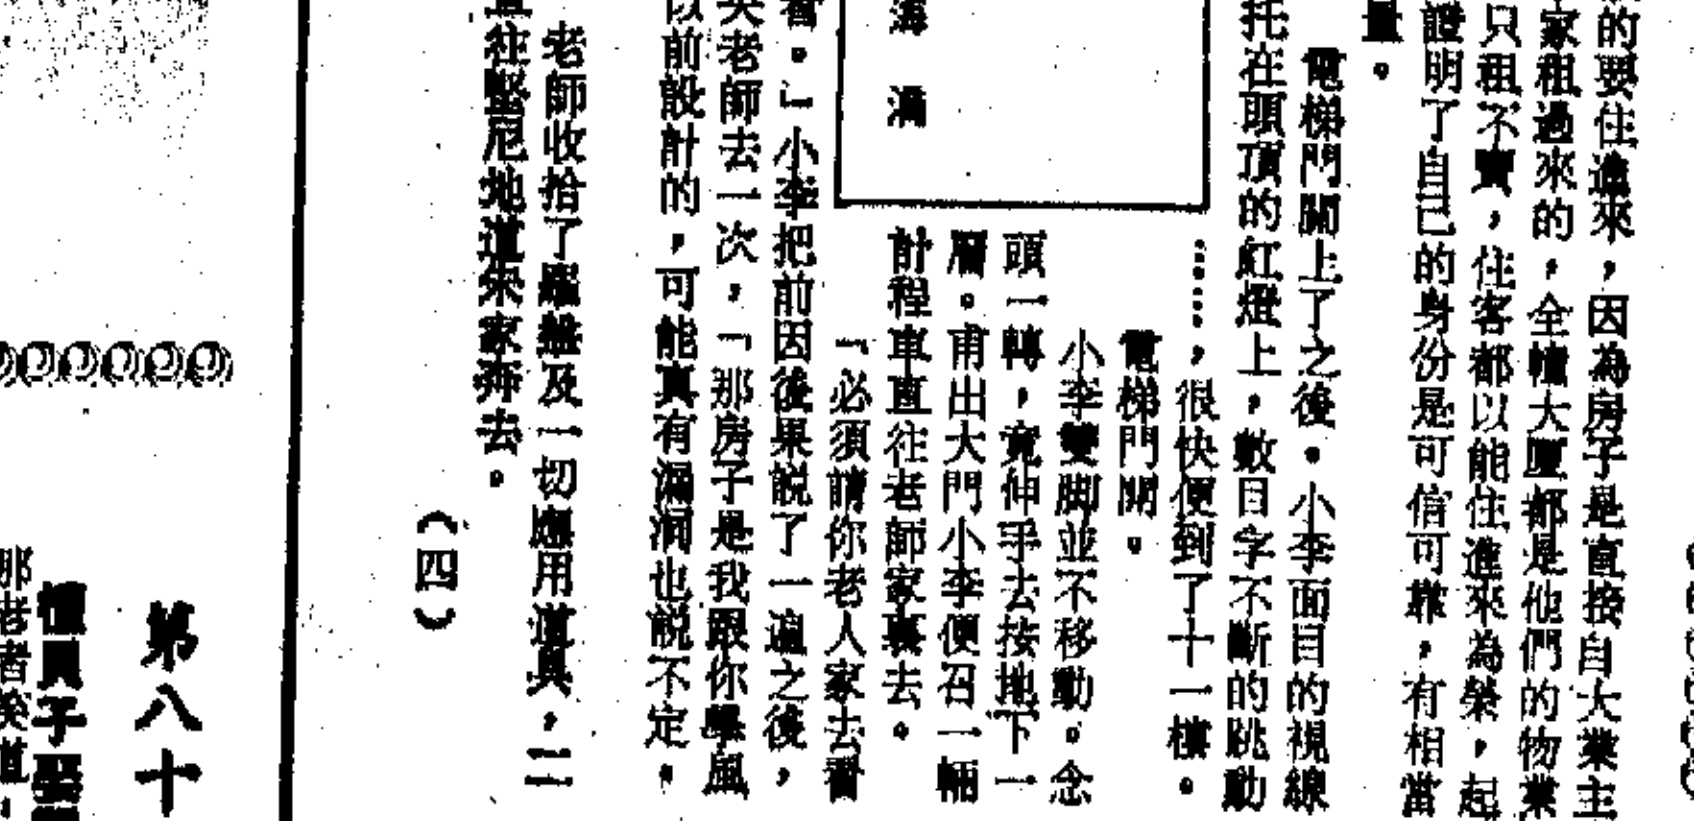 的要住進來，因為房子是直接自大業主
家租過來的，全幢大廈都是他們的物業
只租不賣，住客都以能住進來為榮，起
證明了自己的身份是可信可靠，有相當
量。
電梯門關上了之後。小李面目的視線
托在頭頂的紅燈上，數目字不斷的跳動
……，很快便到了十一樓。
電梯門開。
小李雙脚並不移動。念
頭一轉，竟伸手去按地下一
層。甫出大門小李便召一輛
計程車直往老師家裏去。
「必須請你老人家去看
看。」小李把前因後果説了一遍之後，
老師去一次，「那房子是我跟你學風
以前設計的，可能真有漏洞也説不定。
老師收拾了羅盤及一切應用道具，二
直往堅尼地道朱家奔去。
（四）
第八十
那老者矣道，